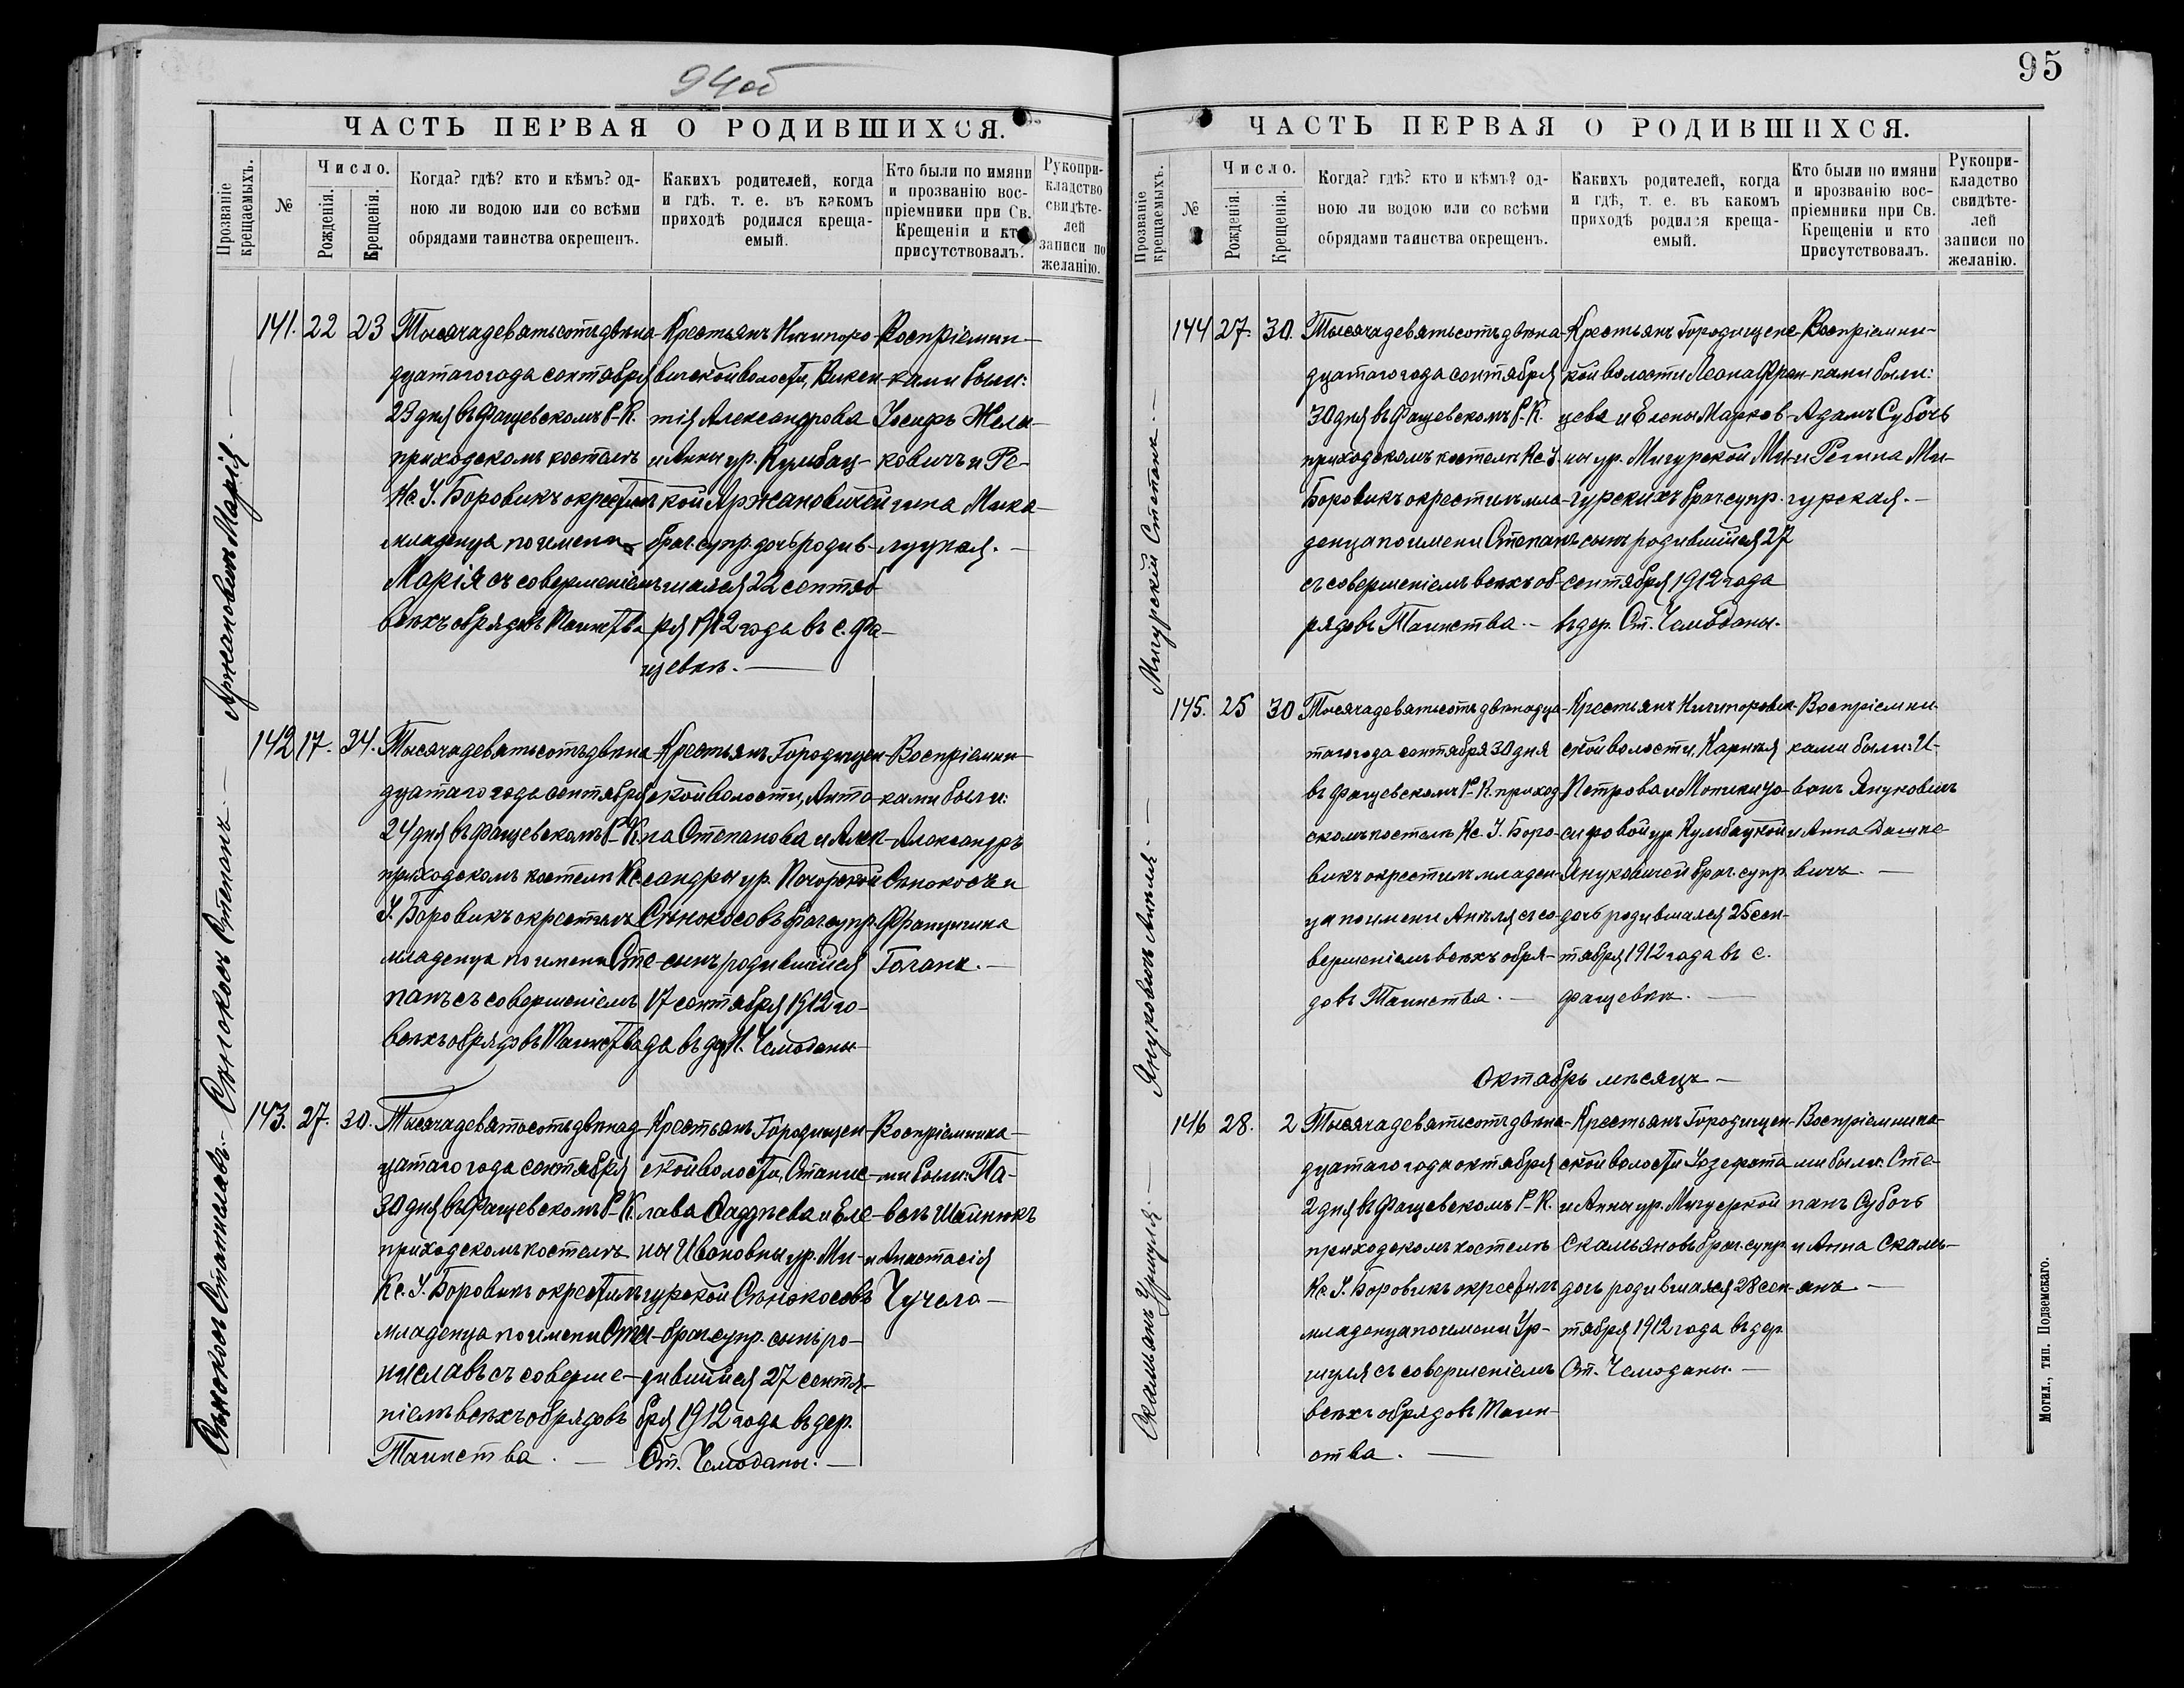 94об
ЧАСТЬ ПЕРВАЯ О РОДИВШИХСЯ.
Прозваніе крещаемыхъ.
№
Число.
Рожденія.
Крещенія.
Когда? гдѣ? кто и кѣмъ? од-
ною ли водою или со всѣми
обрядами таинства окрещенъ.
Какихъ родителей, когда
и гдѣ, т. е. въ какомъ
приходѣ родился креща-
емый.
Кто были по имяни
и прозванію вос-
пріемники при Св.
Крещеніи и кто
присутствовалъ.
Рукопри-
кладство
свидѣте-
лей
записи по
желанію.
Аржановичъ Марія.
141. 22 23
Тысяча девятьсотъ двѣна-
дцатаго года сентября
23 дня въ Фащевскомъ Р-К.
приходскомъ костелѣ
Кс. І. Боровикъ окрестилъ
младенца по имени
Марія съ совершеніемъ
всѣхъ обрядовъ Таинства
Крестьянъ Ничипоро-
вичской волости, Викен-
тія Александрова
и Анны ур. Кульбац-
кой Аржановичей
брач. супр. дочь родив-
шаяся 22 сентяб
ря 1912 года въ с. Фа-
щевкѣ.
Воспріемни-
ками были:
Іосифъ Жела-
ковичъ и Ре-
гина Мака-
луцкая.
Сѣнокосъ Степанъ.
142 17. 24.
Тысяча девятьсотъ двѣна-
дцатаго года сентября
24 дня въ Фащевскомъ Р-К.
приходскомъ костелѣ Кс.
І. Боровикъ окрестилъ
младенца по имени Сте-
панъ съ совершеніемъ
всѣхъ обрядовъ Таинства
Крестьянъ Городищен-
ской волости, Анто-
на Степанова и Алек-
сандры ур.
Сѣнокосовъ брач. супр.
сынъ родившійся
17 сентября 1912 го-
да въ дер. Н. Чемоданы
Воспріемни-
ками были:
Александръ
Сѣнокосъ и
Францишка
Гогана.
Сѣнокосъ Станиславъ.
143. 27. 30.
Тысяча девятьсотъ двѣнад-
цатаго года сентября
30 дня въ Фащевскомъ Р-К.
приходскомъ костелѣ
Кс. І. Боровикъ окрестилъ
младенца по имени Ста-
ниславъ съ соверше-
ніемъ всѣхъ обрядовъ
Таинства.
Крестьянъ Городищен-
ской волости, Станис-
лава Фаддѣева и Еле-
ны Ивановны ур. Ми-
гурской Сѣнокосовъ
брач. супр. сынъ ро-
дившійся 27 сентя-
бря 1912 года въ дер.
Ст. Чемоданы.
Воспріемника-
ми были: Па-
велъ Шейнюкъ
и Анастасія
Чучело
95
ЧАСТЬ ПЕРВАЯ О РОДИВШИХСЯ.
Прозваніе крещаемыхъ.
№
Число.
Рожденія.
Крещенія.
Когда? гдѣ? кто и кѣмъ? од-
ною ли водою или со всѣми
обрядами таинства окрещенъ.
Какихъ родителей, когда
и гдѣ, т. е. въ какомъ
приходѣ родился креща-
емый.
Кто были по имяни
и прозванію вос-
пріемники при Св.
Крещеніи и кто
присутствовалъ.
Рукопри-
кладство
свидѣте-
лей
записи по
желанію.
Мигурскій Степанъ.
144 27. 30.
Тысяча девятьсотъ двѣна-
дцатаго года сентября
30 дня въ Фащевскомъ Р-К.
приходскомъ костелѣ Кс. І.
Боровикъ окрестилъ мла-
денца по имени Степанъ
съ совершеніемъ всѣхъ об-
рядовъ Таинства.
Крестьянъ Городищенс-
кой волости Леона Фран-
цева и Елены Марков-
ны ур. Мигурской Ми-
гурскихъ брач. супр.
сынъ родившійся 27
сентября 1912 года
въ дер. Ст. Чемоданы.
Воспріемни-
ками были:
Адамъ Субочь
и Регина Ми-
гурская.
Януковичъ Анѣля.
145. 25 30
Тысяча девятьсотъ двѣнадца-
таго года сентября 30 дня
въ Фащевскомъ Р-К. приход-
скомъ костелѣ Кс. І. Боро-
викъ окрестилъ младен-
ца по имени Анѣля съ со-
вершеніемъ всѣхъ обря-
довъ Таинства.
Крестьянъ Ничипорович-
ской волости, Карнѣя
Петрова и Моники Іо-
сифовой ур. Кульбацкой
Януковичей брач. супр.
дочь родившаяся 25 сен-
тября 1912 года въ с.
Фащевкѣ.
Воспріемни-
ками были: И-
ванъ Януковичъ
и Анна Дашке-
вичъ.
Октябрь мѣсяцъ
Скамьянъ Уршуля.
146 28. 2
Тысяча девятьсотъ двѣна-
дцатаго года октября
2 дня въ Фащевскомъ Р-К.
приходскомъ костелѣ
Кс. І. Боровикъ окрестилъ
младенца по имени Ур-
шуля съ совершеніемъ
всѣхъ обрядовъ Таин-
ства.
Крестьянъ Городищен-
ской волости Іозефата
и Анны ур. Мигурской
Скамьяновъ брач. супр.
дочь родившаяся 28 сен-
тября 1912 года въ дер.
Ст. Чемоданы.
Воспріемника-
ми были: Сте-
панъ Субочь
и Анна Скамь-
янъ
Могил., тип. Подземскаго.